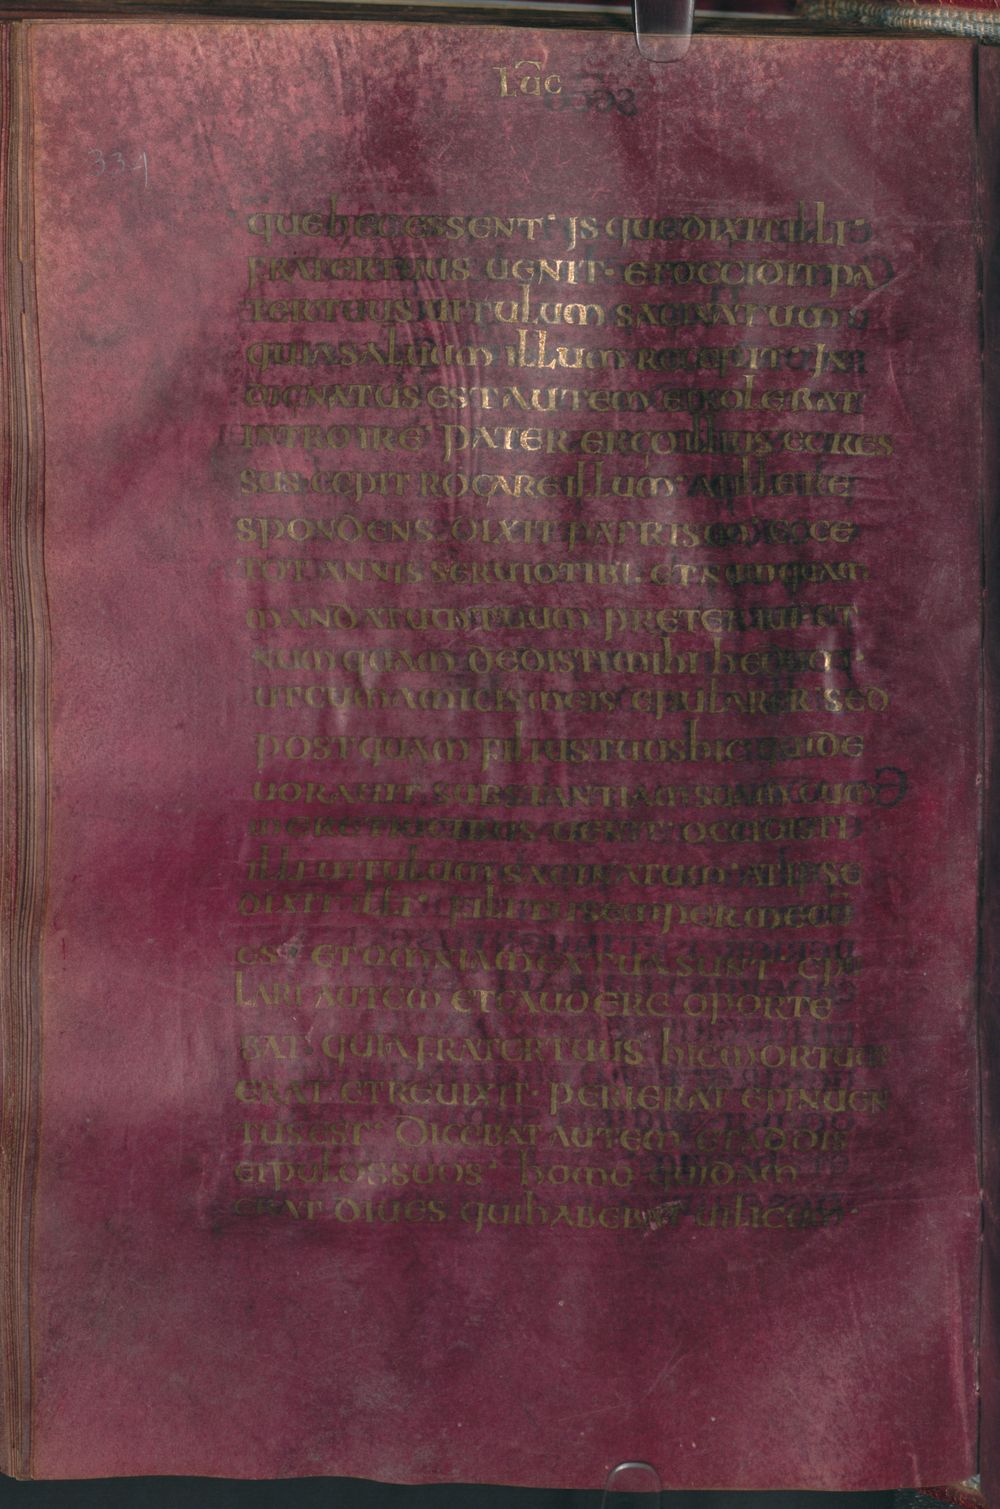 Luc
331
quehecessent· Js quedixitilli·
fratertuus uenit· etoccidit pa
tertuus uitulum saginatum
quiasaluum illum recepit· Jn
dignatus est autem etnolebat
introire· pater ergo illius egres
sus cepit rogare illum· atille re
spondens dixit patri suo ecce
tot annis seruiotibi· et numquam
mandatumtuum preteriui et
numquam dedistimihi hedum·
utcumamicismeis epularer sed
postquam filiustuushic quide
uorauit substantiamsuam cum
meretricibus uenit· occidisti
illi uitulum saginatum· atipse
dixit illi· fili tusempermecum
es· etomniamea tuasunt· epu
lari autem etgaudere oporte
bat· quiafratertuus hicmortuus
erat etreuixit· perierat etinuen
tusest· Dicebat autem etaddis
cipulossuos· homo quidam
erat diues quihabebat uilicum·